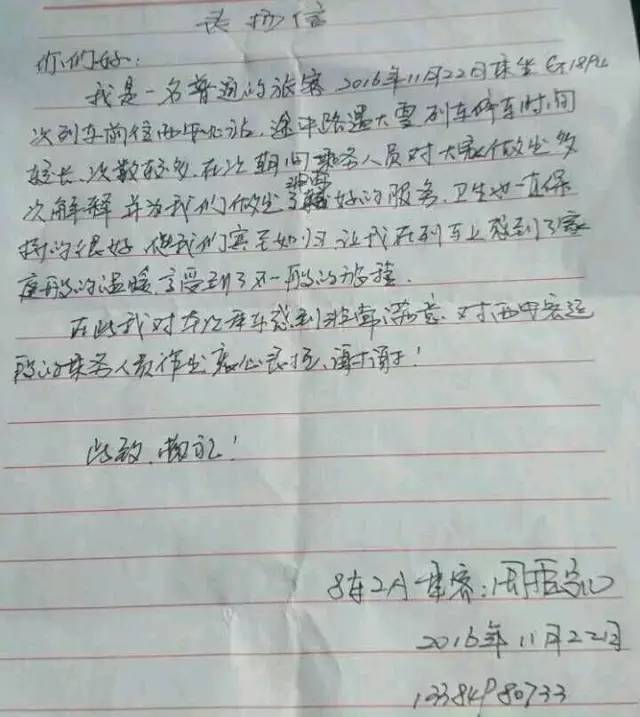 表扬信
你们好:
我是一名普通的旅客 2016年11月22日乘坐G1894
次列车前往西安北站,途中路遇大雪列车停车时间
较长、次数较多,在次期间乘务人员对大家做出多
次解释并为我们做出了好的服务,卫生也一直保
持的很好,使我们宾至如归,让我在列车上感到了家
庭般的温暖,享受到了不一般的旅程.
在此我对本次乘车感到非常满意,对西安客运
段的乘务人员作出衷心表扬,谢谢!
此致,敬礼!
8车2A乘客:周
2016年11月22日
13384980733